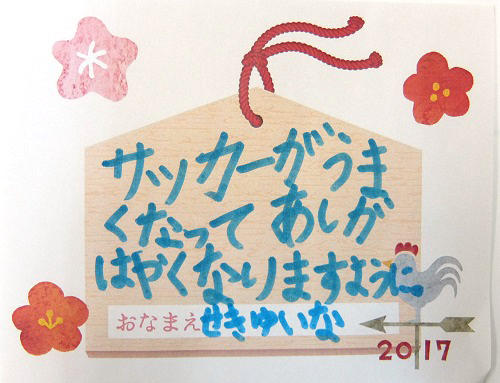 サッカーがうま
くなって あしが
はやくなりますように
おなまえ せきゆいな
2017